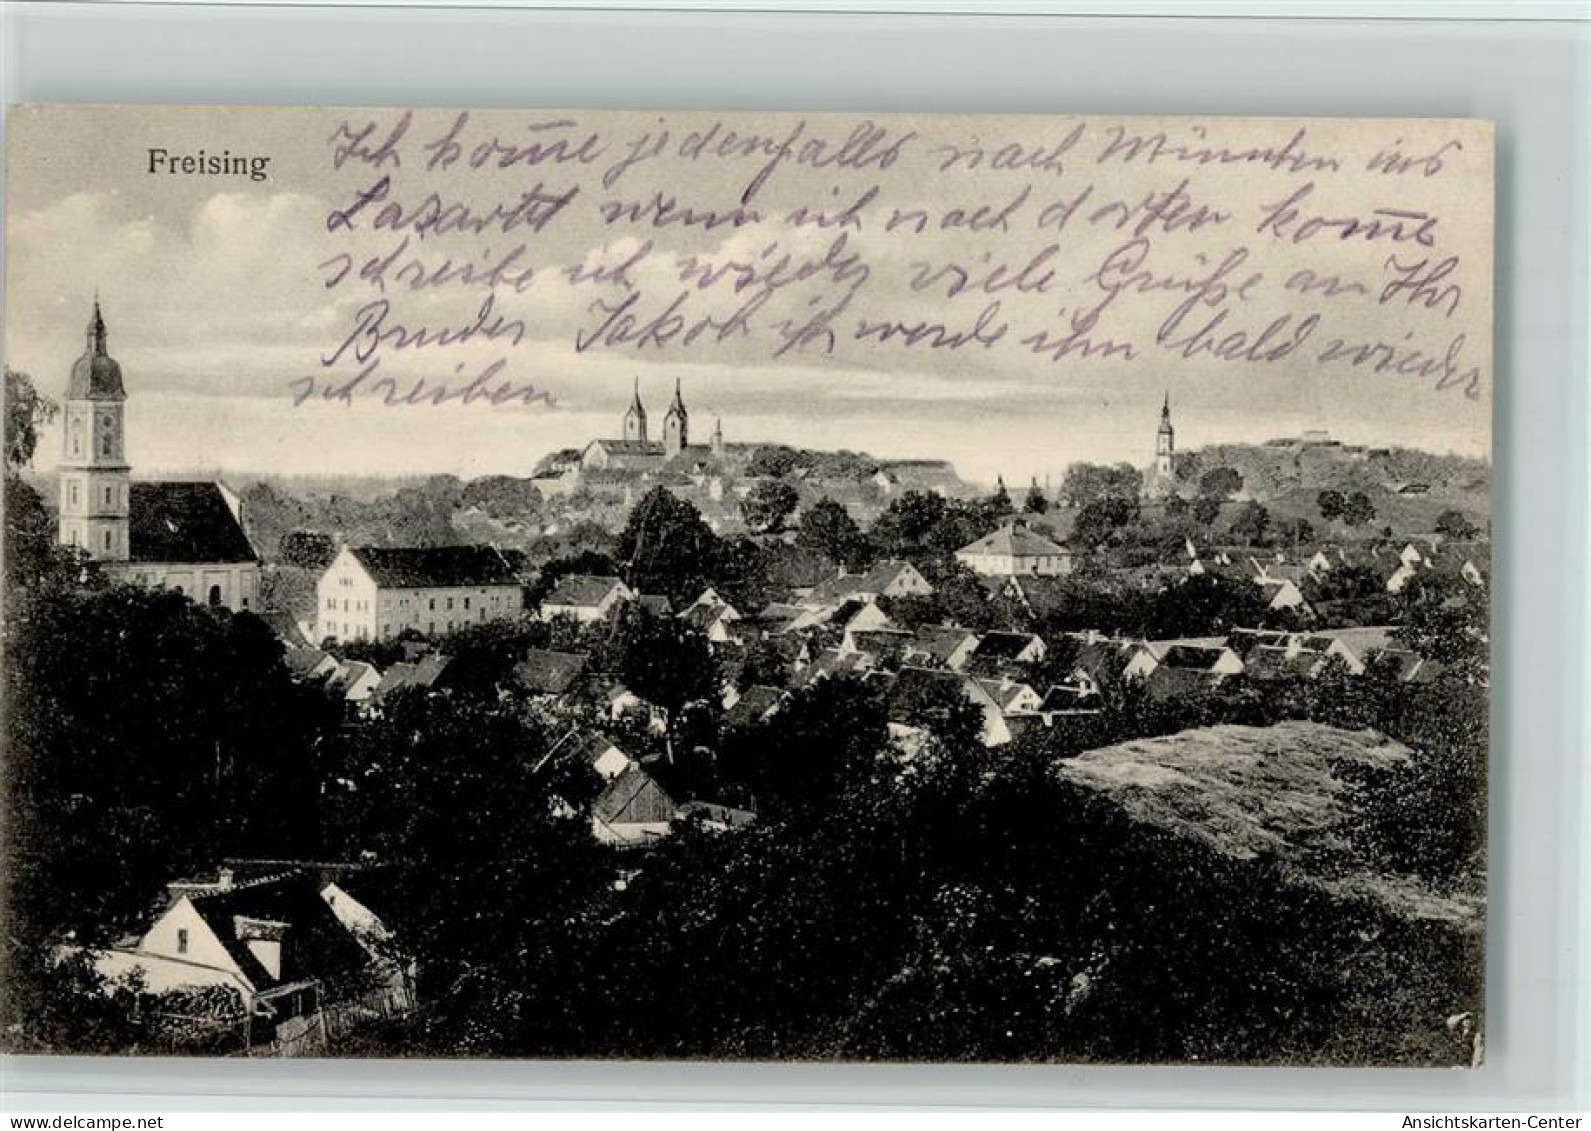 Freising
Ich kom̅e jedenfalls nach Münnchen ins
Lazartt wenn ich nach dorten kom̅e
schreibe ich wieder viele Grüße an Ihr
Bruder Jakob ich werde ihn bald wieder
schreiben
www.delcampe.net
great-cards
Ansichtskarten-Center